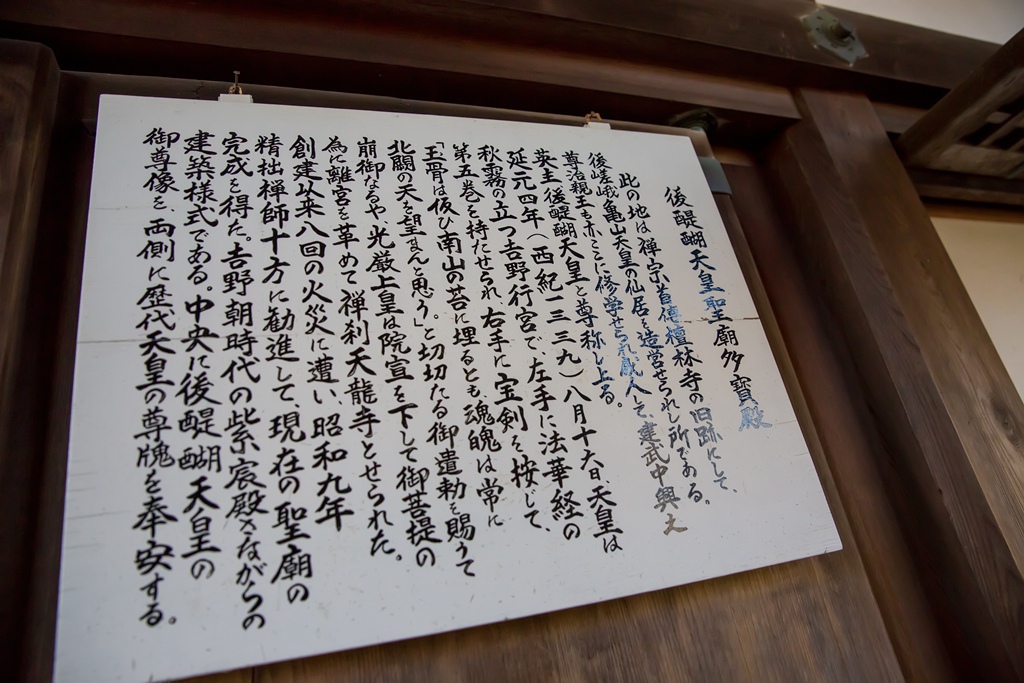 後醍醐天皇聖廟多寶殿
此の地は禅宗首傳檀林寺の旧跡にして、
後嵯峨亀山天皇の仙居を造営せられし所である。
尊治親王も亦ここに修学せられ成人して、建武中興之
英主後醍醐天皇と尊称し上る。
延元四年(西紀一三三九)八月十六日、天皇は
秋霧の立つ吉野行宮で、左手に法華経の
第五巻を持たせられ、右手に宝剣を按じて、
「玉骨は仮ひ南山の苔に埋るとも、魂魄は常に
北闕の天を望まんと思う」。と切切たる御遺勅を賜うて
崩御なるや光厳上皇は院宣を下して御菩提の
為に離宮を革めて禅刹天龍寺とせられた。
創建以来八回の火災に遭い、昭和九年
精拙禅師十方に勧進して、現在の聖廟の
完成を得た。吉野朝時代の紫宸殿さながらの
建築様式である。中央に後醍醐天皇の
御尊像を、両側に歴代天皇の尊牌を奉安する。